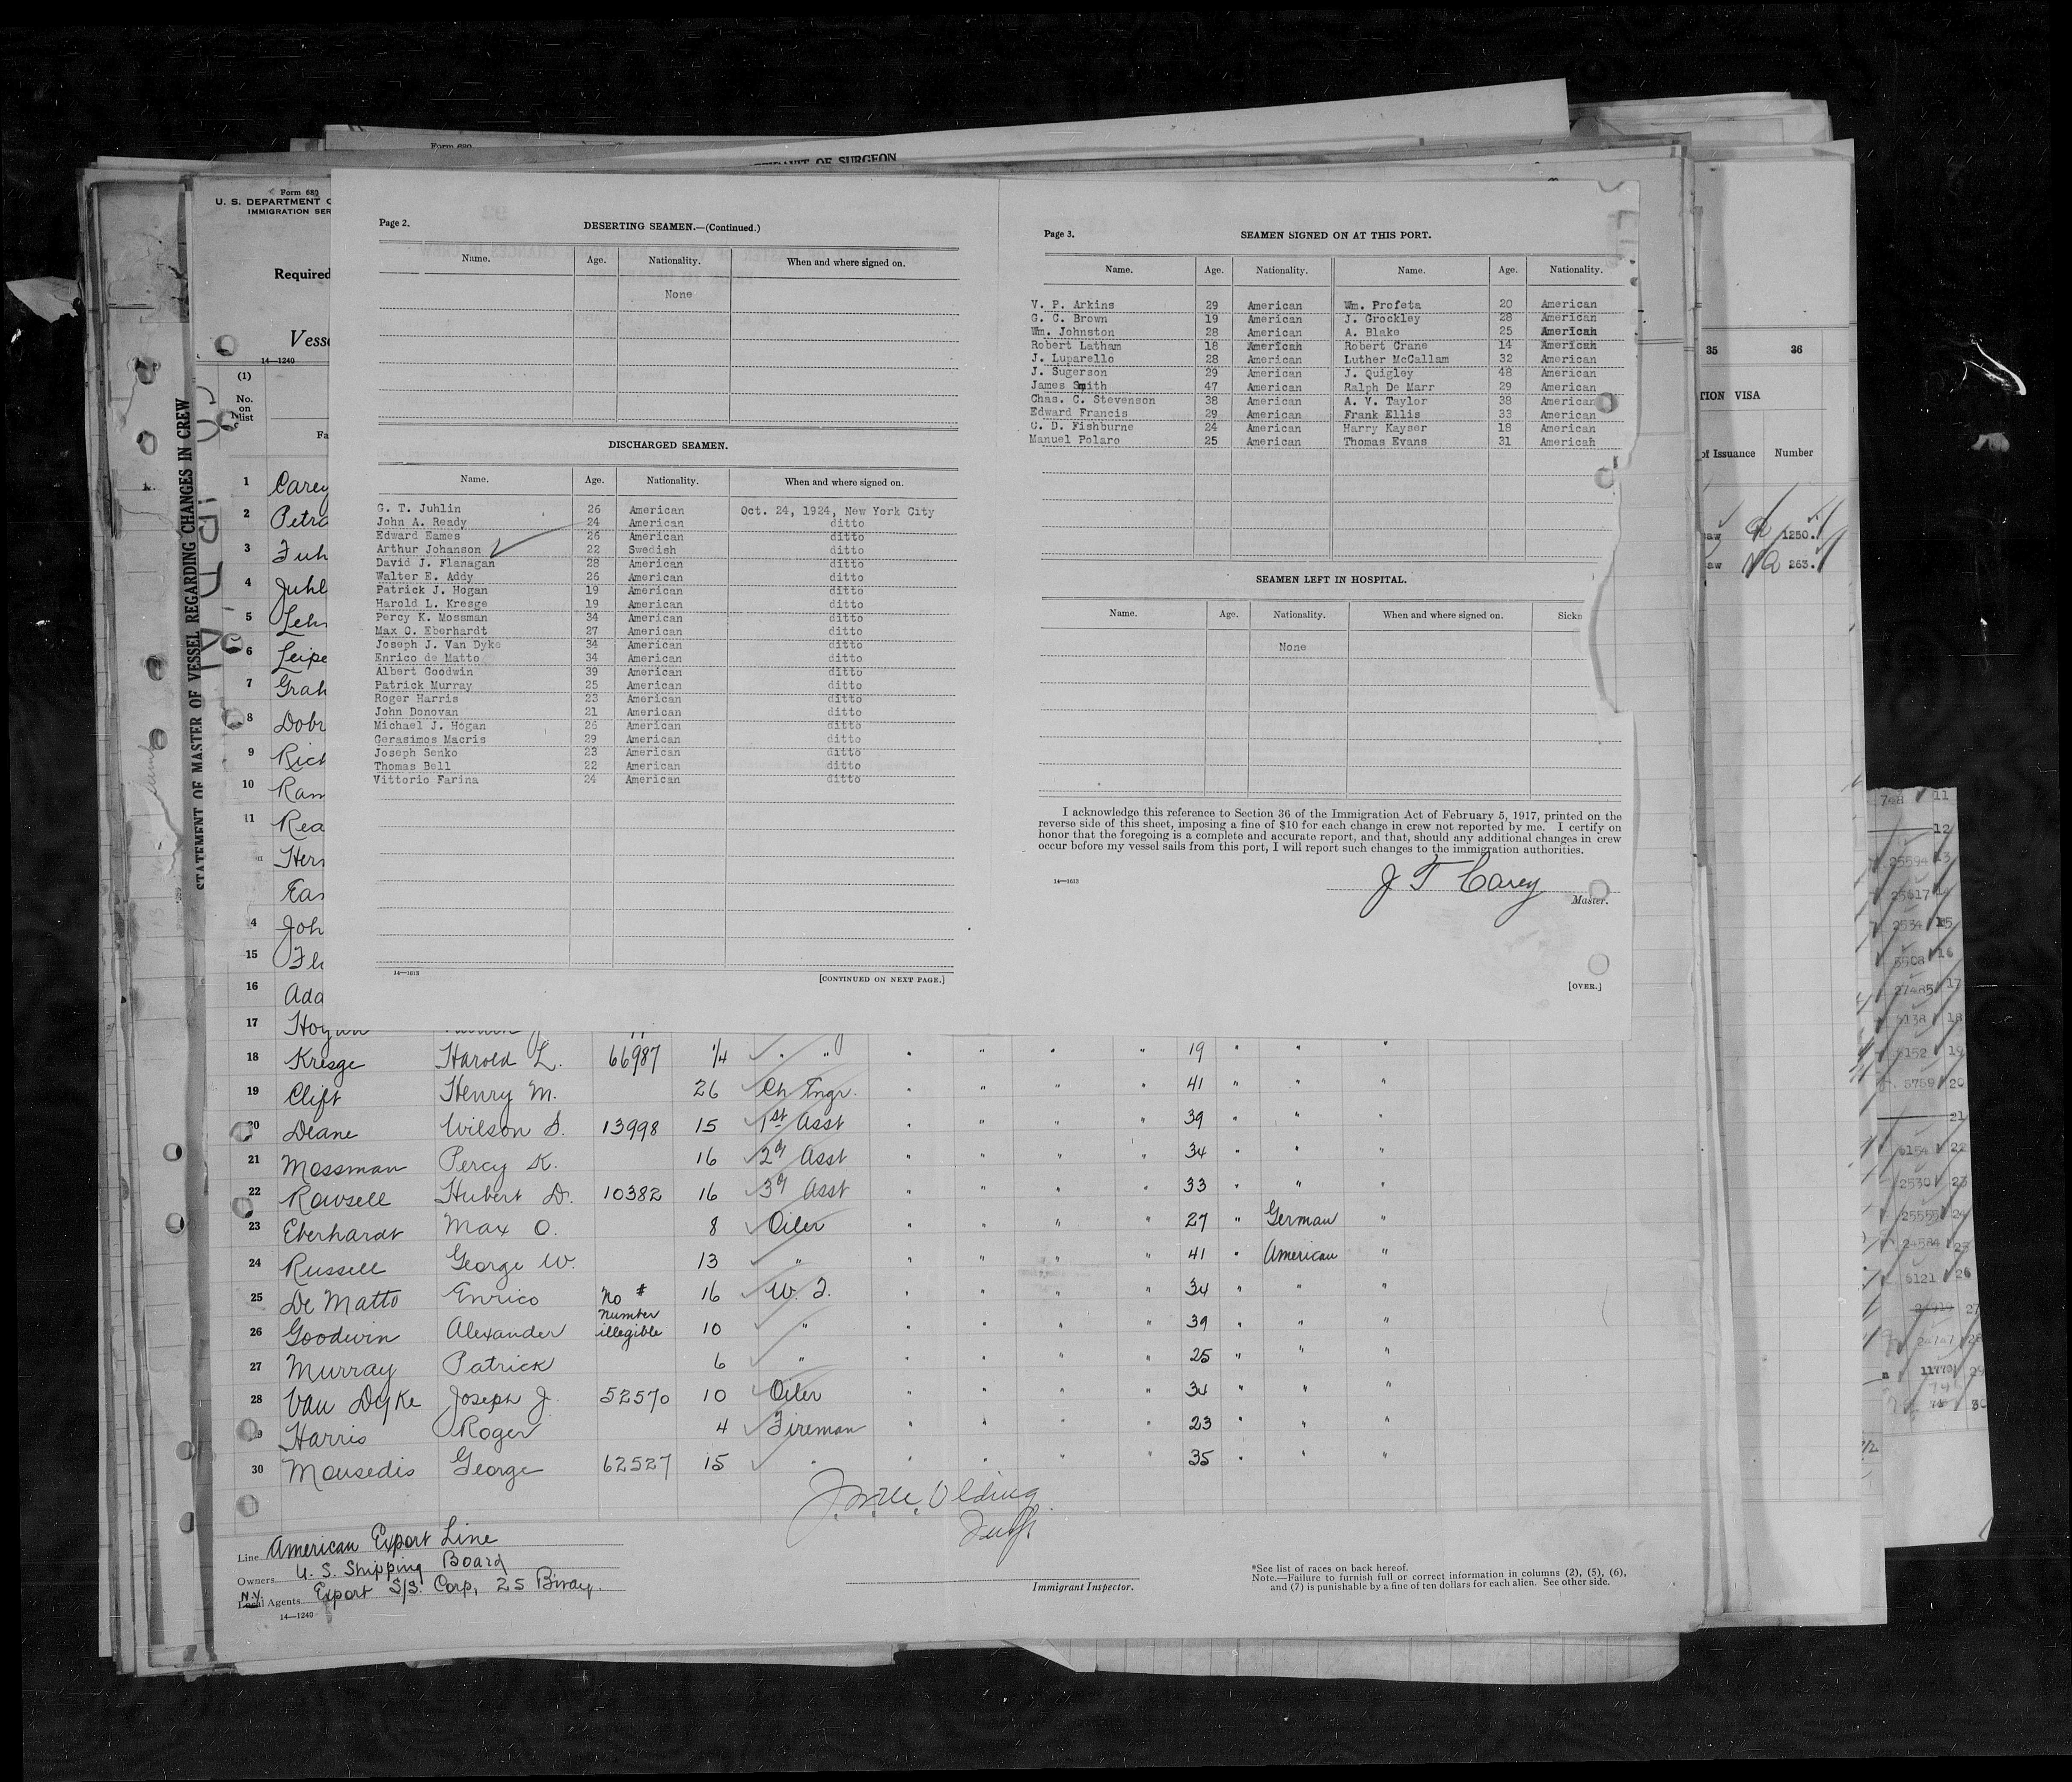 Form 689
U. S. DEPARTMENT
IMMIGRATION SER
Required
14—1240
(1)
No.
on
list
STATEMENT OF MASTER OF VESSEL REGARDING CHANGES IN CREW
Page 2.
DESERTING SEAMEN.—(Continued.)
Name. Age. Nationality. When and where signed on.
None
DISCHARGED SEAMEN.
Name. Age. Nationality. When and where signed on.
G. T. Juhlin 26 American Oct. 24, 1924, New York City
John A. Ready 24 American ditto
Edward Eames 26 American ditto
Arthur Johanson 22 Swedish ditto
David J. Flanagan 28 American ditto
Walter E. Addy 26 American ditto
Patrick J. Hogan 19 American ditto
Harold L. Kresge 19 American ditto
Percy K. Mossman 34 American ditto
Max O. Eberhardt 27 American ditto
Joseph J. Van Dyke 34 American ditto
Enrico de Matto 34 American ditto
Albert Goodwin 39 American ditto
Patrick Murray 25 American ditto
Roger Harris 23 American ditto
John Donovan 21 American ditto
Michael J. Hogan 26 American ditto
Gerasimos Macris 29 American ditto
Joseph Senko 23 American ditto
Thomas Bell 22 American ditto
Vittorio Farina 24 American ditto
14—1613
[CONTINUED ON NEXT PAGE.]
Page 3.
SEAMEN SIGNED ON AT THIS PORT.
Name. Age. Nationality. Name. Age. Nationality.
V. P. Arkins 29 American Wm. Profeta 20 American
G. C. Brown 19 American J. Grockley 28 American
Wm. Johnston 28 American A. Blake 25 American
Robert Latham 18 American Robert Crane 14 American
J. Luparello 28 American Luther McCallam 32 American
J. Sugerson 29 American J. Quigley 48 American
James Smith 47 American Ralph De Marr 29 American
Chas. C. Stevenson 38 American A. V. Taylor 38 American
Edward Francis 29 American Frank Ellis 33 American
C. D. Fishburne 24 American Harry Kayser 18 American
Manuel Polaro 25 American Thomas Evans 31 American
SEAMEN LEFT IN HOSPITAL.
Name. Age. Nationality. When and where signed on. Sickn
None
I acknowledge this reference to Section 36 of the Immigration Act of February 5, 1917, printed on the
reverse side of this sheet, imposing a fine of $10 for each change in crew not reported by me. I certify on
honor that the foregoing is a complete and accurate report, and that, should any additional changes in crew
occur before my vessel sails from this port, I will report such changes to the immigration authorities.
14—1613
J T Carey
Master.
[OVER.]
1 Carey
2 Petr
3 Fuh
4 Juhl
5 Leh
6 Leipe
7 Grah
8 Dobr
9 Rich
10 Ram
11 Rea
Her
Ea
4 Joh
15 Fl
16 Add
17 Hogan
18 Kresge Harold L. 66987 1/4 " " " " " " 19 " " "
19 Clift Henry M. 26 Ch Engr. " " " " 41 " " "
20 Deane Wilson S. 13998 15 1st Asst " " " " 39 " " "
21 Mossman Percy K. 16 2d Asst " " " " 34 " " "
22 Rowsell Hubert D. 10382 16 3d Asst " " " " 33 " " "
23 Eberhardt Max O. 8 Oiler " " " " 27 " German "
24 Russell George W. 13 " " " " " 41 " American "
25 De Matto Enrico No # 16 W. T. " " " " 34 " " "
26 Goodwin Alexander Number illegible 10 " " " " " 39 " " "
27 Murray Patrick 6 " " " " " 25 " " "
28 Van Dyke Joseph J. 52570 10 Oiler " " " " 34 " " "
29 Harris Roger 4 Fireman " " " " 23 " " "
30 Mousedis George 62527 15 " " " " " 35 " " "
Line American Export Line
Owners U. S. Shipping Board
N.Y. Local Agents Export S/S. Corp, 25 Bway.
14—1240
Immigrant Inspector.
*See list of races on back hereof.
Note.—Failure to furnish full or correct information in columns (2), (5), (6),
and (7) is punishable by a fine of ten dollars for each alien. See other side.
35 36
TION VISA
of Issuance Number
1250.
263.